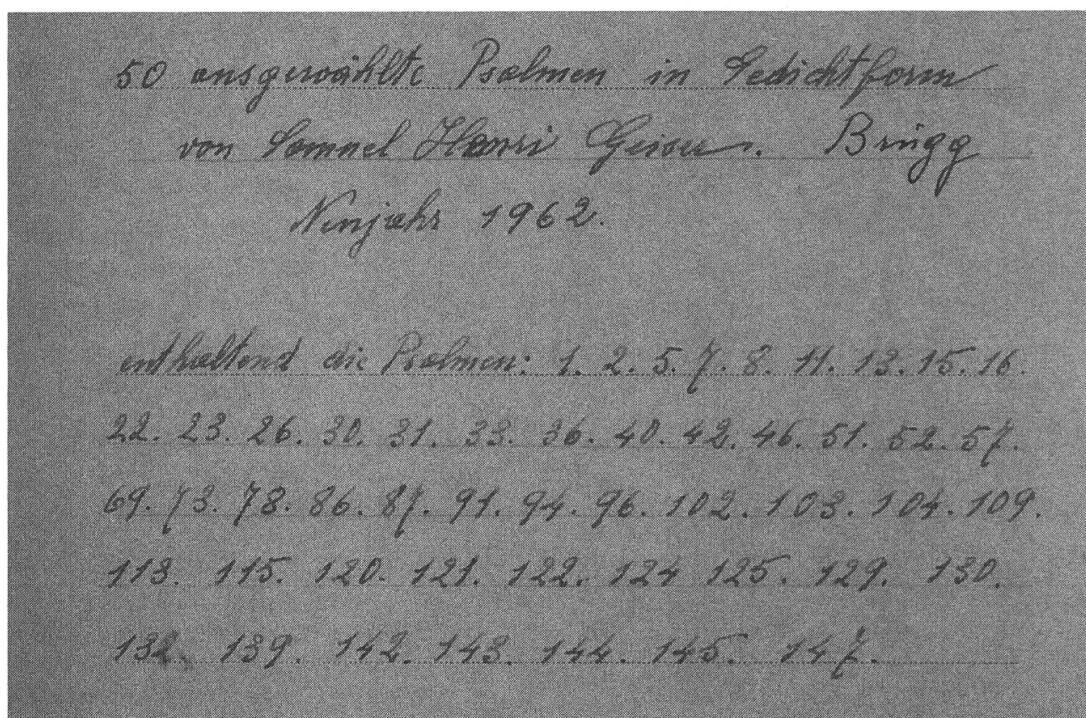 50 ausgewählte Psalmen in Gedichtform
von Samuel Henri Geiser. Brügg
Neujahr 1962.
enthaltend die Psalmen: 1. 2. 5. 7. 8. 11. 13. 15. 16.
22. 23. 26. 30. 31. 33. 36. 40. 42. 46. 51. 52. 57.
69. 73. 78. 86. 87. 91. 94. 96. 102. 103. 104. 109.
113. 115. 120. 121. 122. 124 125. 129. 130.
132. 139. 142. 143. 144. 145. 147.